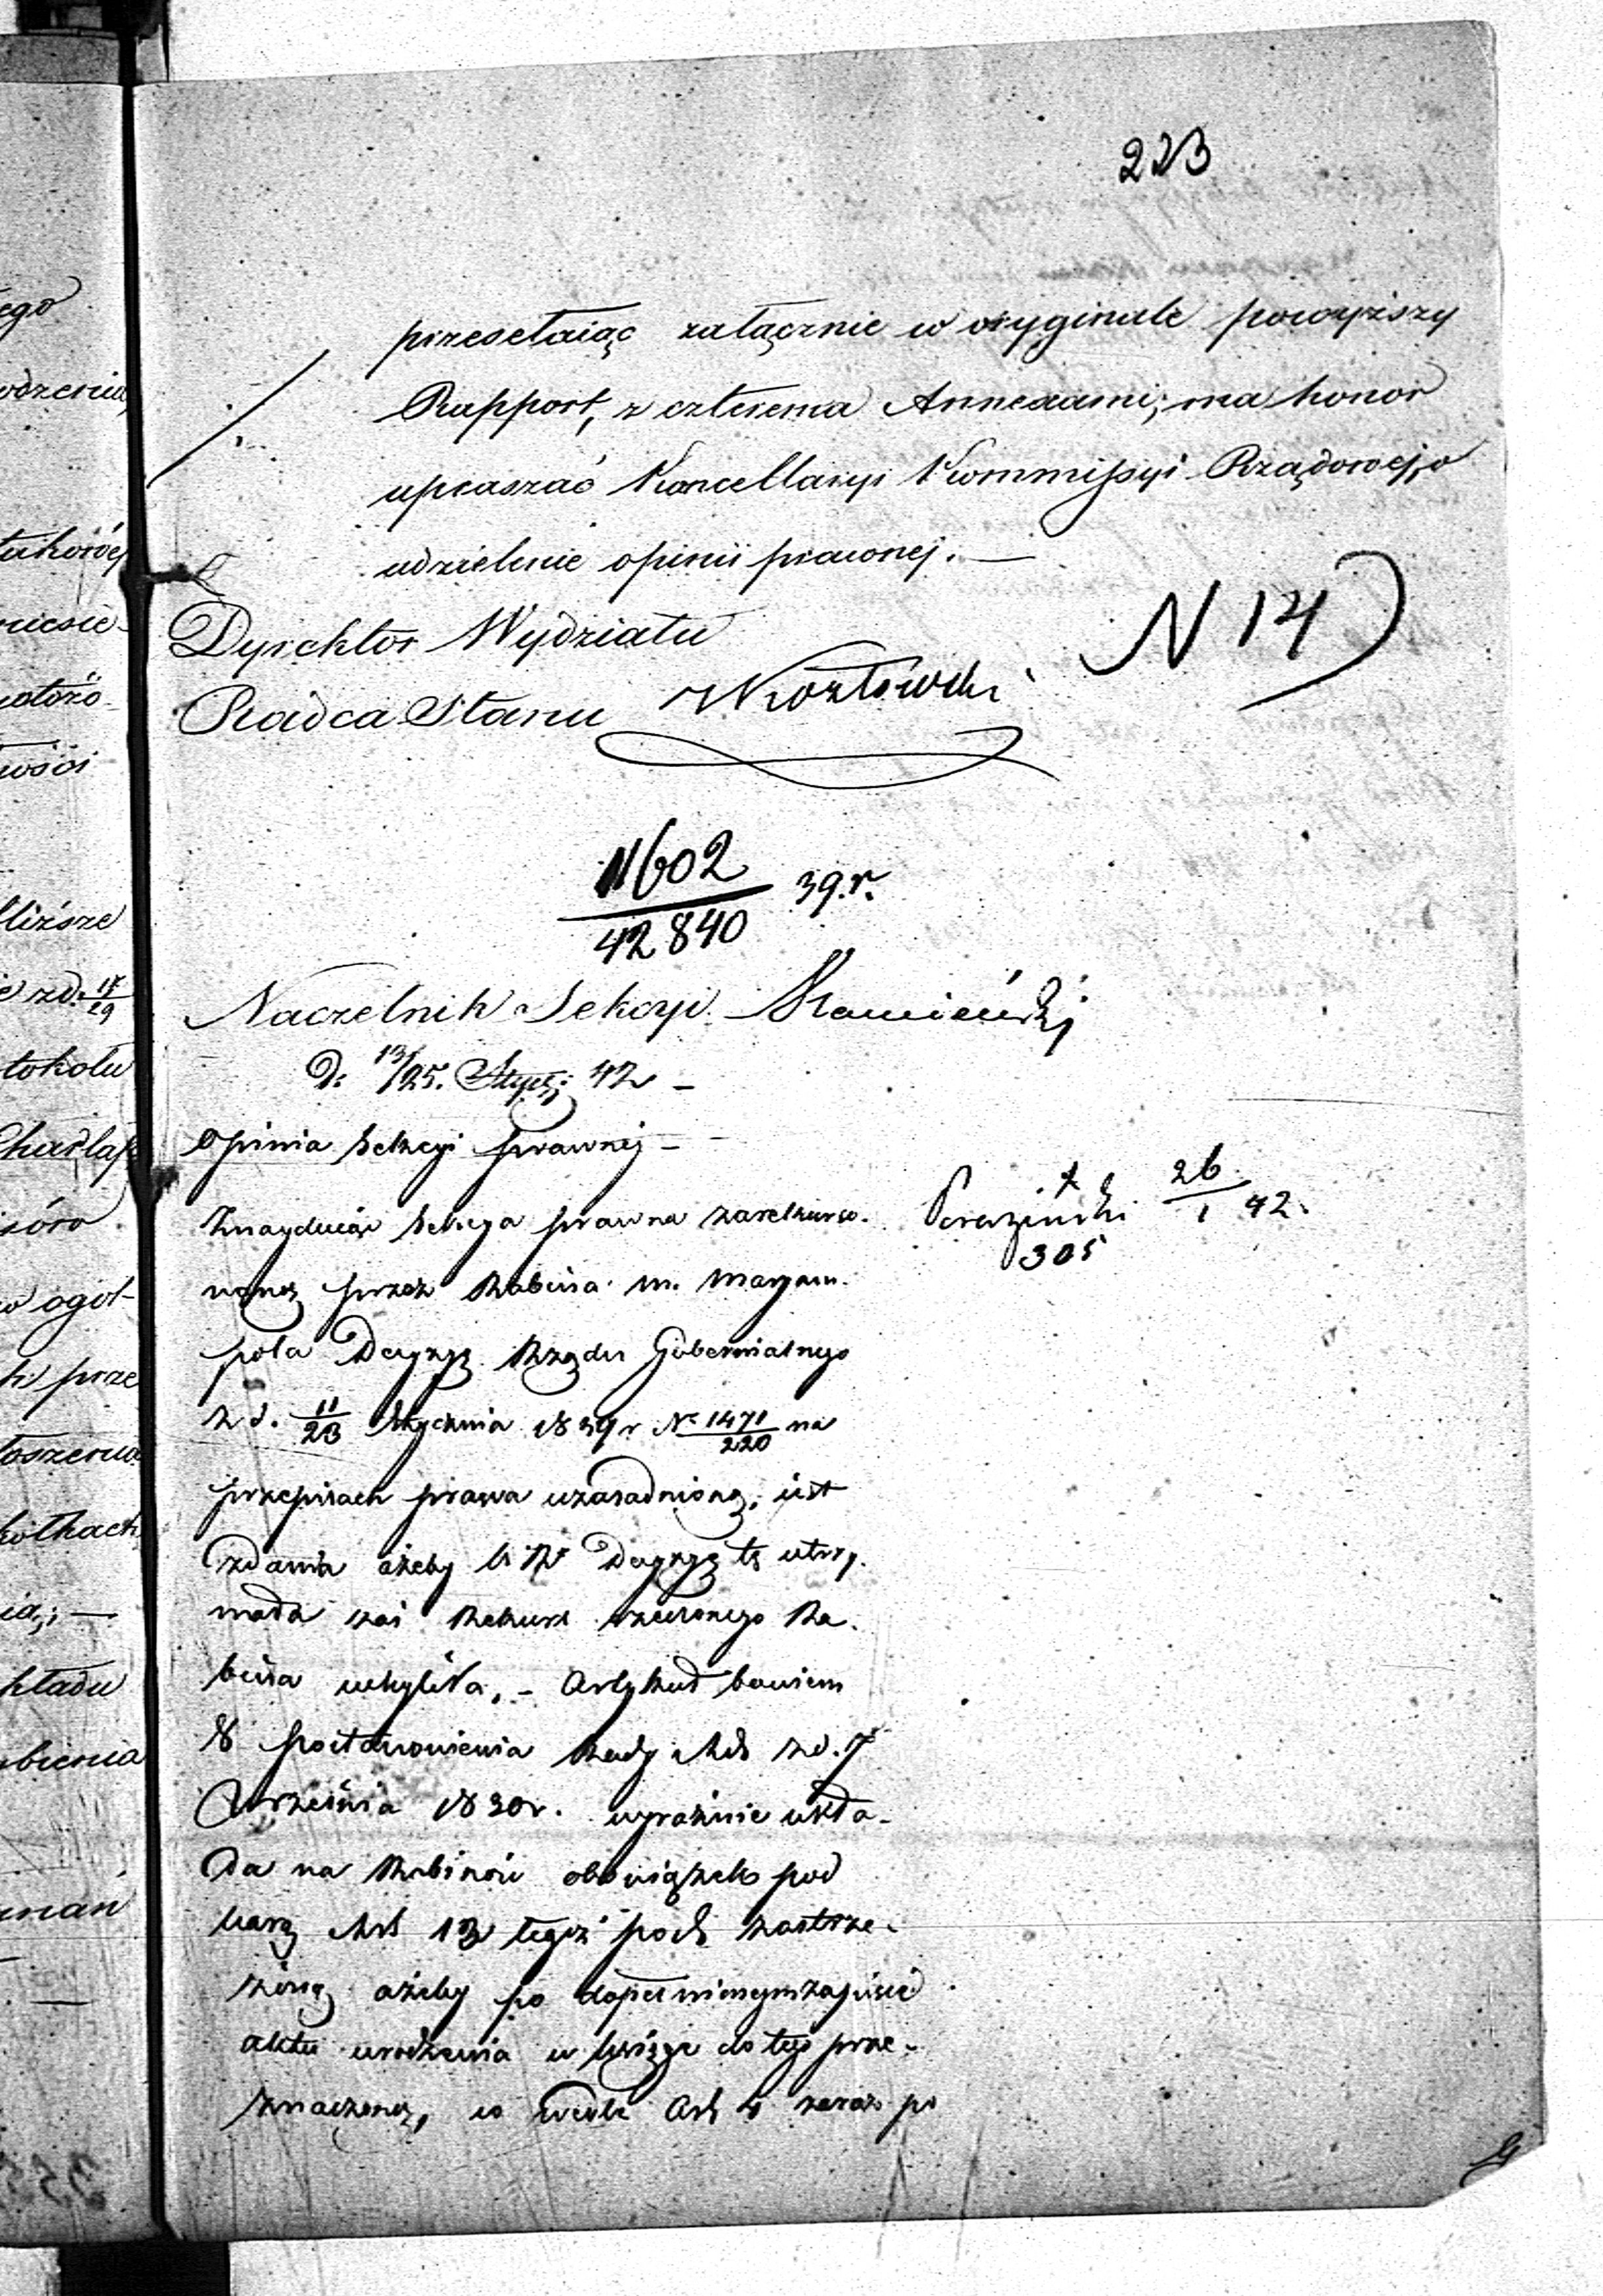 223
przesełaiąc załącznie w oryginale powyższy
Rapport, z czterema Annexami; ma honor
upraszać Kancellaryi Kommissyi Rządowej, o
udzielenie opinii prawnej. —
N 14
Dyrektor Wydziału
Radca Stanu Kozłowski
11602
42840 39.r.
Naczelnik Sekcyi
D. 13/25. Stycz: 42 —
Opinia Sekcyi prawnej —
26
1 42.
305
Znayduiąc Sekcya prawna zarekurso-
waną przez Rabina m. Maryam-
pola Decyzyą Rządu Gubernialnego
z d. 11/23 Stycznia 1839 r N. 1471/220 na
przepisach prawa uzasadnioną, iest
zdania ażeby Decyzyę tę utrzy-
mała zaś Rekurs rzeczonego Ra-
bina uchyliła, — Artykuł bowiem
8 postanowienia Rady z d. 7
Września 1830 r. wyraźnie wkła-
da na Rabinów obowiązek pod
karą Art 13 tegoż post. zastrze-
żoną ażeby po dopełnionym zapisie
aktu urodzenia w księgę do tego prze-
znaczoną, co wedle Art 4 zaraz po